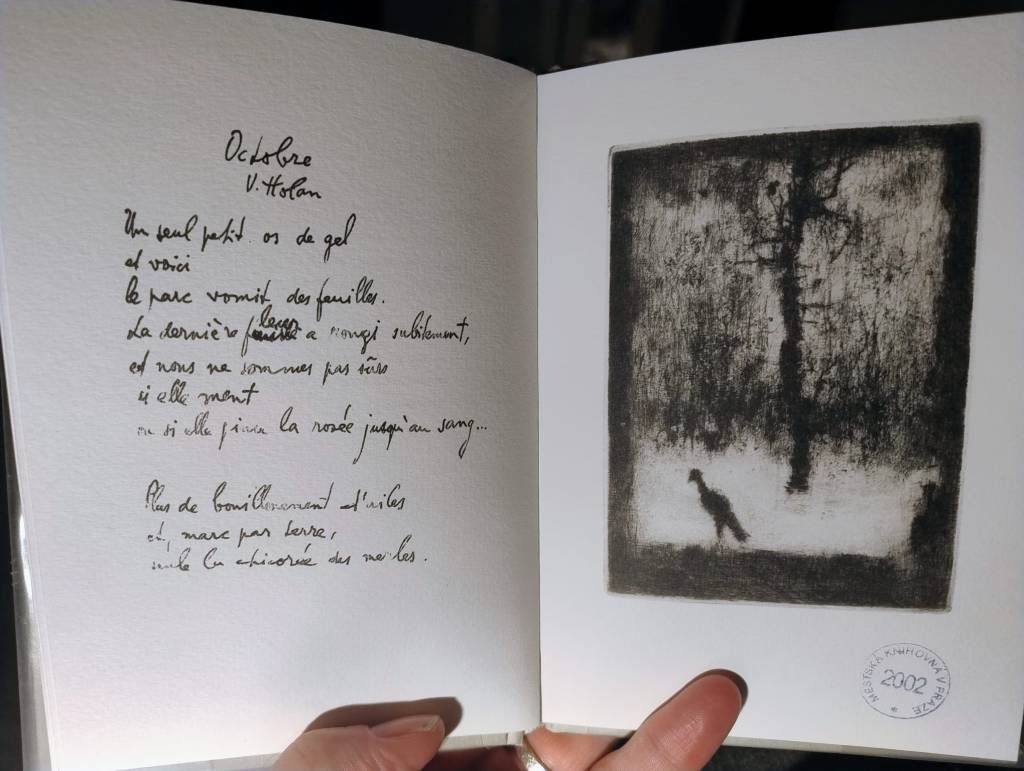 Octobre
V. Holan
Un seul petit os de gel
et voici
le parc vomit des feuilles.
La dernière a rougi subitement,
et nous ne sommes pas sûrs
si elle ment
ou si elle la rosée jusqu'au sang...
Plus de bouillonnement d'ailes
et, marc par terre,
seule la chicorée des merles.
MĚSTSKÁ KNIHOVNA V PRAZE
2002